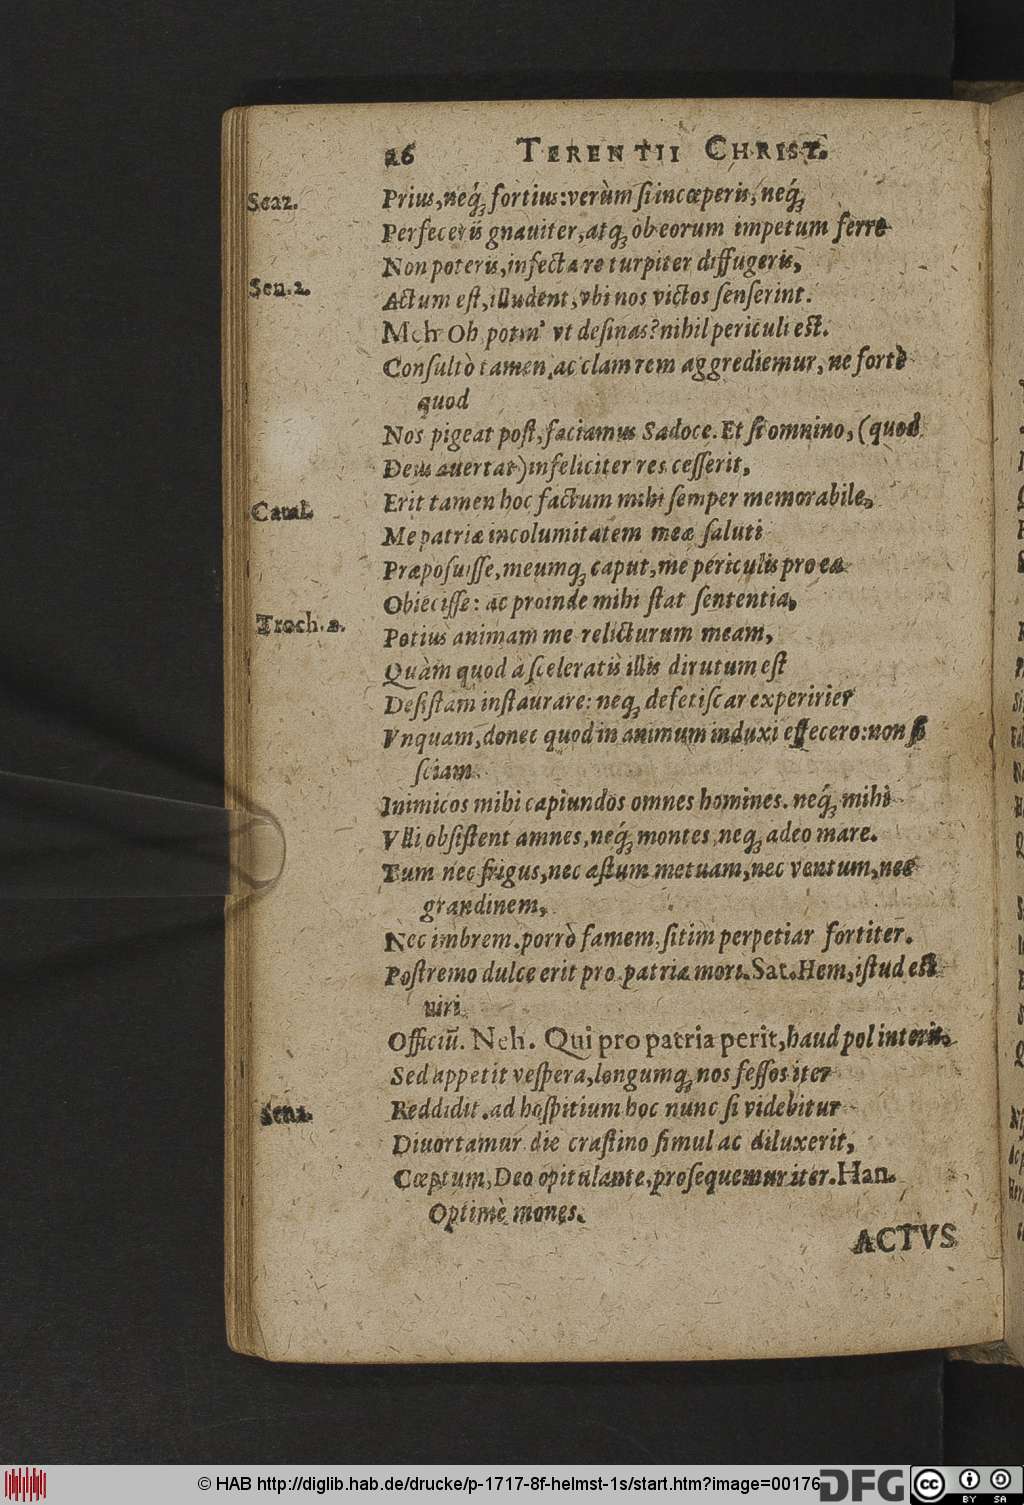 26 TERENTII CHRIST.
Scaz. Prius, neq́; fortius: verùm si incœperis, neq́;
Perfeceris gnauiter, atq; ob eorum impetum ferre
Non poteris, infecta re turpiter diffugeris,
Sen. 2. Actum est, illudent, vbi nos victos senserint.
Meh Oh potin' vt desinas? nihil periculi est.
Consultò tamen, ac clam rem aggrediemur, ne fortè
quod
Nos pigeat post, faciamus Sadoce. Et si omnino, (quod
Deus auertat) infeliciter res cesserit,
Catal. Erit tamen hoc factum mihi semper memorabile,
Me patriæ incolumitatem meæ saluti
Præposuisse, meumq; caput, me periculis pro ea
Obiecisse: ac proinde mihi stat sententia,
Troch. 2. Potius animam me relicturum meam,
Quàm quod à sceleratis illis dirutum est
Desistam instaurare: neq; defetiscar experirier
Vnquam, donec quod in animum induxi effecero: non si
sciam
Inimicos mihi capiundos omnes homines. neq́; mihi
Vlli obsistent amnes, neq́; montes, neq; adeo mare.
Tum nec frigus, nec æstum metuam, nec ventum, nec
grandinem,
Nec imbrem. porrò famem, sitim perpetiar fortiter.
Postremo dulce erit pro patria mori. Sat. Hem, istud est
uiri
Officiũ. Neh. Qui pro patria perit, haud pol interit,
Sed appetit vespera, longumq; nos fessos iter
Sena. Reddidit. ad hospitium hoc nunc si videbitur
Diuortamur die crastino simul ac diluxerit,
Cœptum, Deo opitulante, prosequemur iter. Han.
Optimè mones.
ACTVS
© HAB http://diglib.hab.de/drucke/p-1717-8f-helmst-1s/start.htm?image=00176
DFG
cc BY SA